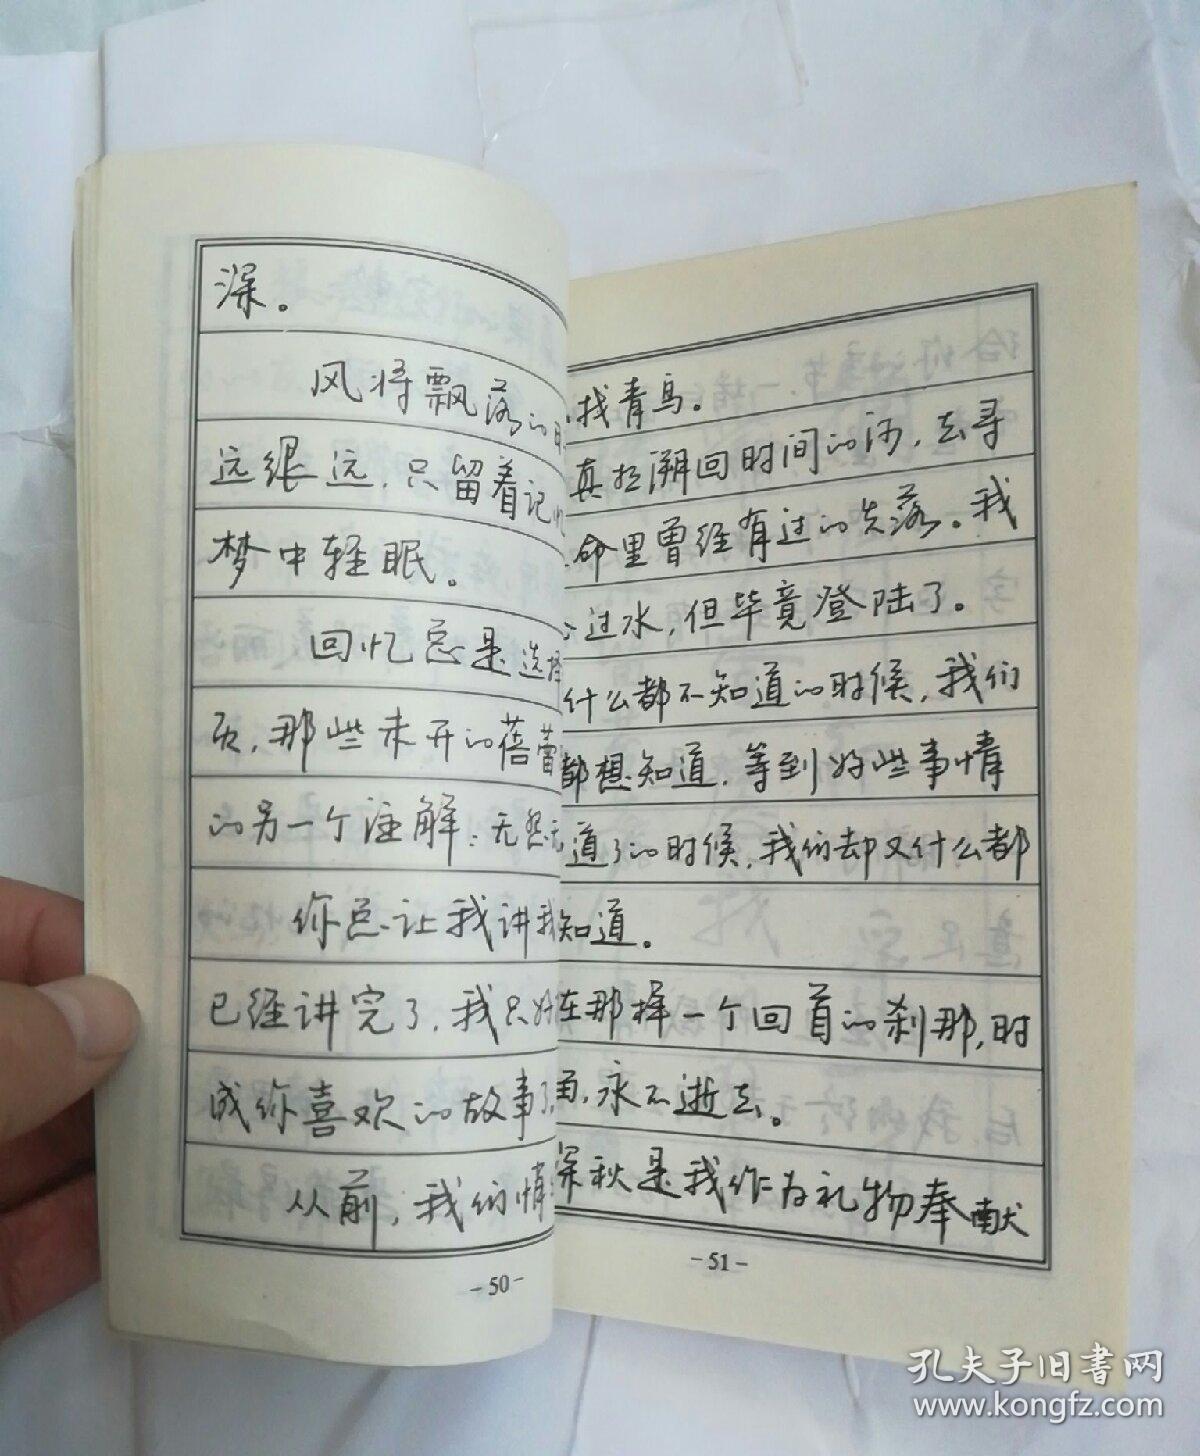 深。
风将飘落的
远很远，只留着记忆
梦中轻眠。
回忆总是选择
页，那些未开的蓓蕾
的另一个注解：无怨无
你总让我讲我
已经讲完了，我只好
成你喜欢的故事了
从前，我们情
-50-
找青鸟。
真想溯回时间的河，去寻
命里曾经有过的失落。我
过水，但毕竟登陆了。
什么都不知道的时候，我们
都想知道，等到好些事情
道了的时候，我们却又什么都
知道。
在那择一个回首的刹那，时
永不逝去。
深秋是我作为礼物奉献
-51-
孔夫子旧书网
www.kongfz.com